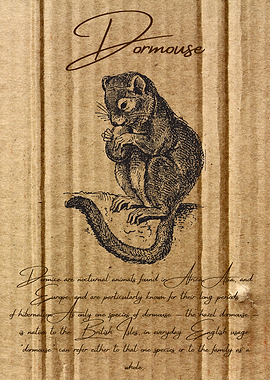 Dormouse
Dormice are nocturnal animals found in Africa, Asia, and
Europe, and are particularly known for their long periods
of hibernation. As only one species of dormouse – the hazel dormouse
is native to the British Isles, in everyday English usage
"dormouse" can refer either to that one species or to the family as a
whole.